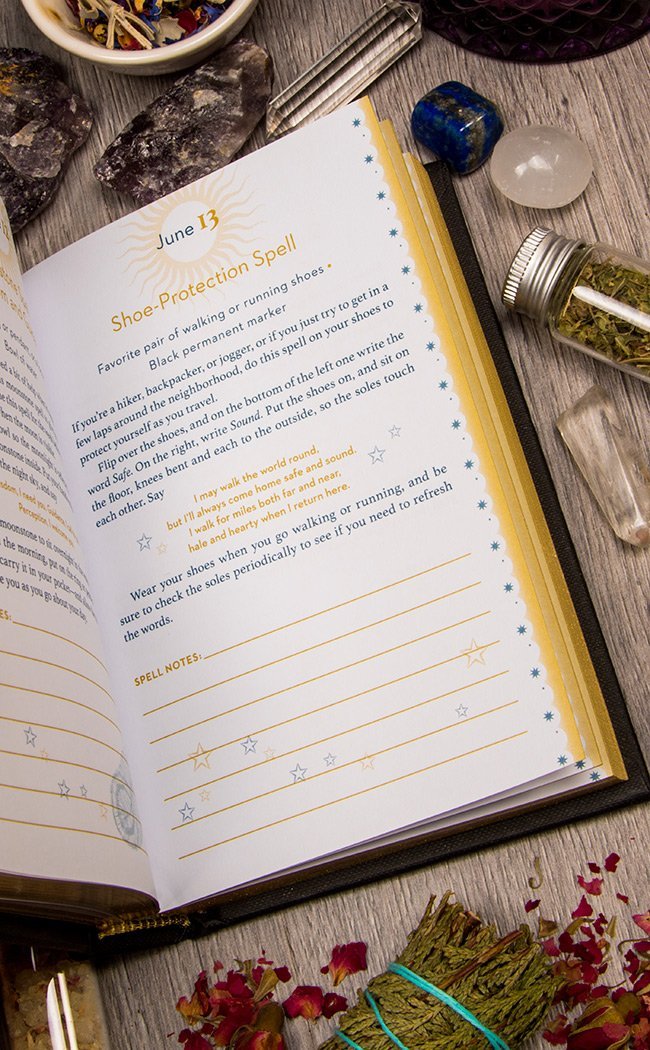 June 13
Shoe-Protection Spell
Favorite pair of walking or running shoes •
Black permanent marker
If you're a hiker, backpacker, or jogger, or if you just try to get in a
few laps around the neighborhood, do this spell on your shoes to
protect yourself as you travel.
Flip over the shoes, and on the bottom of the left one write the
word Safe. On the right, write Sound. Put the shoes on, and sit on
the floor, knees bent and each to the outside, so the soles touch
each other. Say
I may walk the world round,
but I'll always come home safe and sound.
I walk for miles both far and near,
hale and hearty when I return here.
Wear your shoes when you go walking or running, and be
sure to check the soles periodically to see if you need to refresh
the words.
SPELL NOTES:
Bowl of water
moonstone to sit overnight
the morning, put on the
carry it in your pocket—and
you as you go about your day.